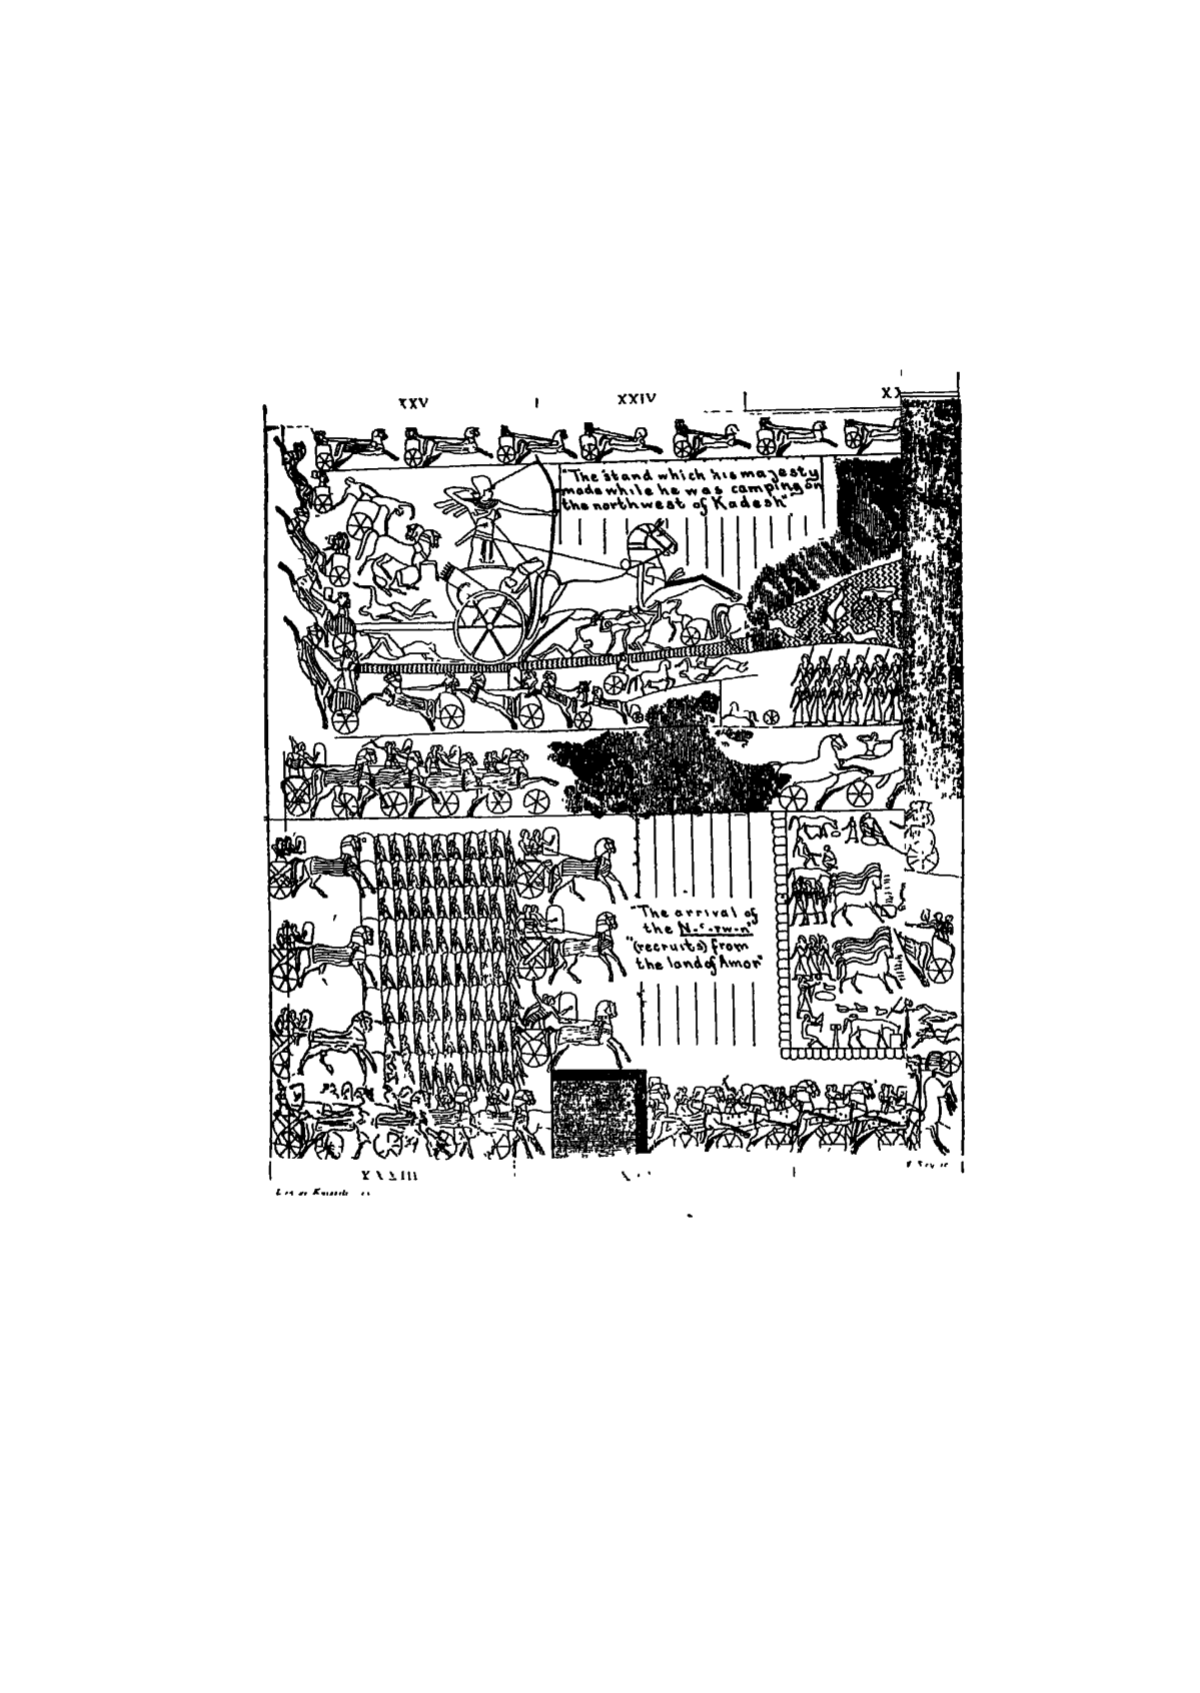 XXIV
"The stand which his majesty
made while he was camping on
the northwest of Kadesh"
"The arrival of
the N-ᶜ-rw-n"
"(recruits) from
the land of Amor"